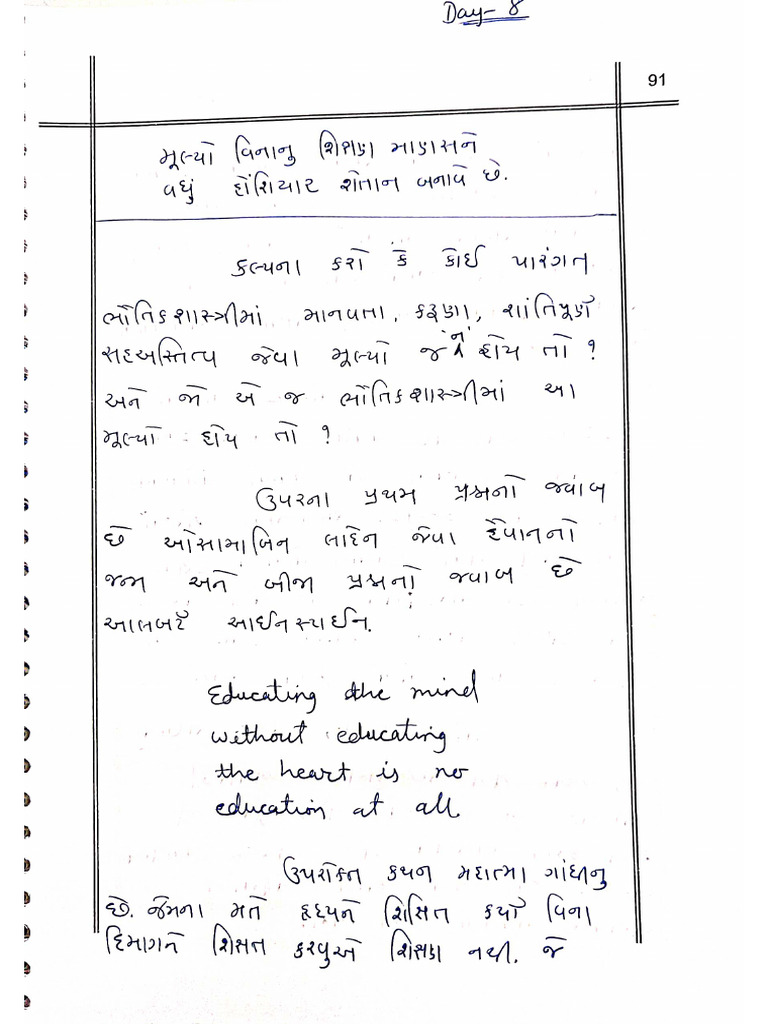 Day- 8
91
મૂલ્યો વિનાનુ શિક્ષણ માણસને
વધું હોંશિયાર શેતાન બનાવે છે.
કલ્પના કરો કે કોઈ પારંગત
ભૌતિકશાસ્ત્રીમાં માનવતા, કરૂણા, શાંતિપૂર્ણ
સહઅસ્તિત્વ જેવા મૂલ્યો જ ન હોય તો ?
અને જો એ જ ભૌતિકશાસ્ત્રીમાં આ
મૂલ્યો હોય તો ?
ઉપરના પ્રથમ પ્રશ્નનો જવાબ
છે ઓસામાબિન લાદેન જેવા હૈવાનનો
જન્મ અને બીજા પ્રશ્નનો જવાબ છે
આલબર્ટ આઈનસ્ટાઈન.
Educating the mind
without educating
the heart is no
education at all.
ઉપરોક્ત કથન મહાત્મા ગાંધીનુ
છે. જેમના મતે હૃદયને શિક્ષિત કર્યા વિના
દિમાગને શિક્ષિત કરવુએ શિક્ષણ નથી. જે